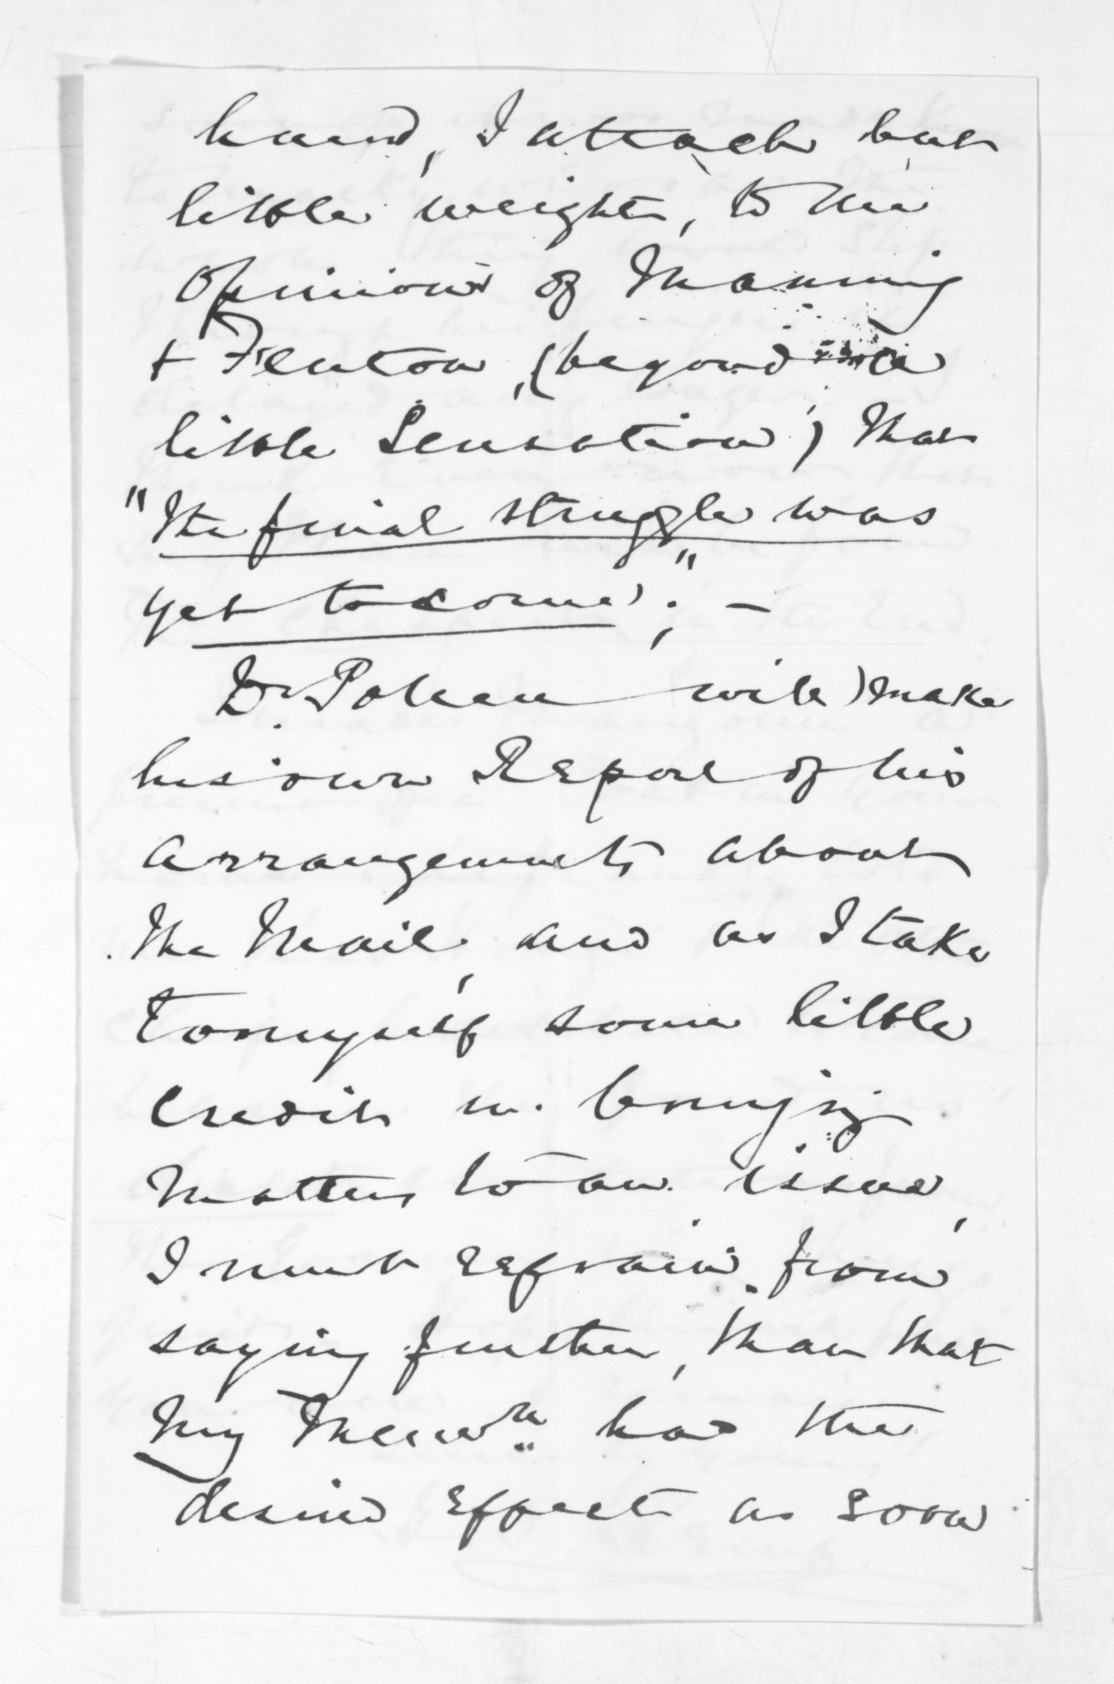 hand, I attach but
little weight, to the
opinions of Manning
& Fenton, (beyond a
little Sensation) that
"the final struggle was
yet to come"; —
Dr Pollen will make
his own Report of his
arrangements about
the Mail, and as I take
to myself some little
credit in bringing
matters to an issue,
I must refrain from
saying further, than that
my Memm had the
desired effect as soon